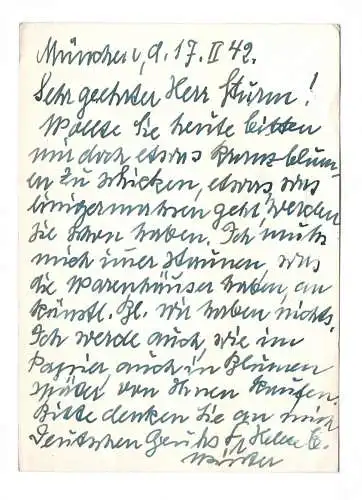 München, d. 17. II 42.
Sehr geehrter Herr Sturm!
Wollte Sie heute bitten
mir doch etwas Kranzblum-
en zu schicken, etwas was
einigermassen geht, werden
Sie schon haben. Ich muss
mich imer staunen, was
die Warenhäuser haben, an
künstl. Bl. wir haben nichts.
Ich werde auch, wie im
Papier, auch in Blumen
später von Ihnen kaufen.
Bitte denken Sie an mich
Deutschen Gruß Helene